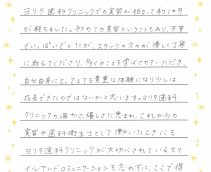 ヨリタ歯科クリニックでの実習が始まって、約1か月
が経ちました。初めての実習ということもあり、不安
でいっぱいでしたが、スタッフの方々が優しく丁寧
に教えてくださり、多くのことを学ばせていただき、
自分自身にとって、とても貴重な体験になり少しは
成長できたのではないかと思います。ヨリタ歯科
クリニックの温かで、優しさに包まれ、これからの
実習や歯科衛生士として働いたときにも
ヨリタ歯科クリニックが大切にされているスマ
イルアンドコミュニケーションを忘れずに、ここで得